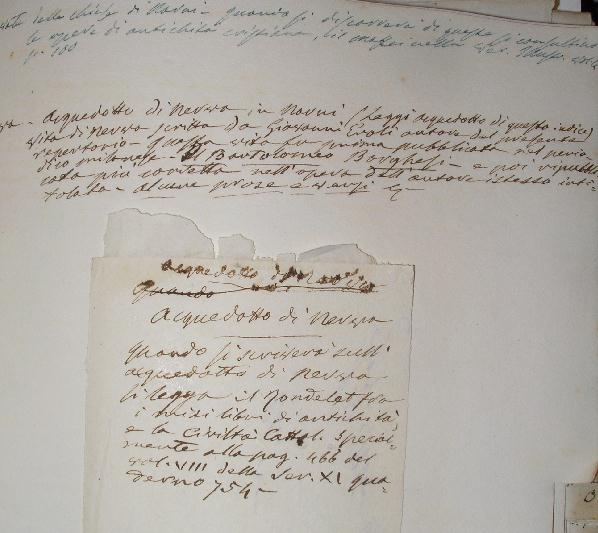 della chiesa di Narni quando si discorrerà di questa si consultino
le opere di antichità cristiana,
pp. 100
Acquedotto di Nerva in Narni (Leggi acquedotto di questo indice)
vita di Nerva scritta da Giovanni Eroli autore del presente
repertorio - questa vita fu prima pubblicata nel perio-
dico milanese - Il Bartolomeo Borghesi - e poi ripubbli-
cata più corretta nell'opera dell'autore istesso inti-
tolata - alcune prose e versi
acquedotto di
quando
Acquedotto di Nerva
quando si scriverà sull'
acquedotto di Nerva
si legga il Rondelet fra
i miei libri di antichità,
e la Civiltà Cattol. special-
mente alla pag. 466 del
vol. VIII della Ser. XI qua-
derno 754 -